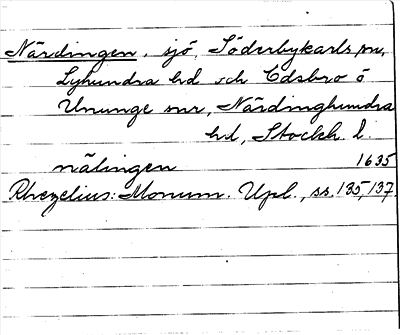 Närdingen, sjö, Söderbykarls sn,
Lyhundra hd och Edsbro o
Ununge snr, Närdinghundra
hd, Stockh. l.
nälingen 1635
Rhezelius: Monum. Upl., ss. 135, 137.